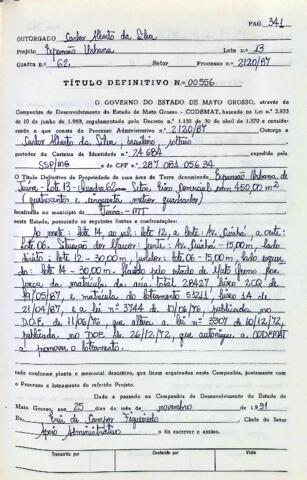 PAG. 341
OUTORGADO Carlos Alberto da Silva
Projeto Expansão Urbana Lote n.º 13
Quadra n.º 62. Setor Processo n.º 2120/87
TÍTULO DEFINITIVO N.º 00556
O GOVERNO DO ESTADO DE MATO GROSSO, através da
Companhia de Desenvolvimento do Estado de Mato Grosso - CODEMAT, baseado na Lei n.º 2.933
10 de junho de 1969, regulamentada pelo Decreto n.º 1.138 de 30 de abril de 1.970 e considerando
o que consta do Processo Administrativo n.º 2120/87 Outorga a
Carlos Alberto da Silva, brasileiro, solteiro
portador da Carteira de Identidade n.º 24684 expedida pela
SSP/MG e do CPF n.º 287 084 056 34
O Título Definitivo de Propriedade de uma área de Terra denominada Expansão Urbana de
Juína - Lote 13 - Quadra 62 - Setor com 450,00 m2
(quatrocentos e cinquenta metros quadrados)
localizada no município de Juína - MT
neste Estado, possuindo os seguintes limites e confrontações:
Ao norte: lote 14, ao sul: lote 12, a leste: Av. Cuiabá, a oeste:
Lote 06. frente: Av. Cuiabá - 15,00m, lado
direito: lote 12 - 30,00m, fundos: lote 06 - 15,00m, lado
lote 14 - 30,00m. pelo estado de Mato Grosso
força da matrícula da área total 28427 livro 2CQ de
/05/87, e matrícula do loteamento livro 2A de
21/04/87, e a lei nº 3744 de 10/06/76, publicada no
D.O.E. de 11/06/76, que altera a lei nº 3307 de 10/12/72,
publicada no DOE de 26/12/72, que autorizou a CODEMAT
a promover o loteamento.
tudo conforme planta e memorial descritivo, que ficam arquivados nesta Companhia, juntamente com
o Processo e loteamento do referido Projeto.
Dado e passado na Companhia de Desenvolvimento do Estado de
Mato Grosso, aos 25 dias do mês de novembro de 1991
Eu, de Campos Figueiredo Chefe do Setor
Apoio Administrativo o fiz escrever e assino.
Transcrito por Conferido por Visto